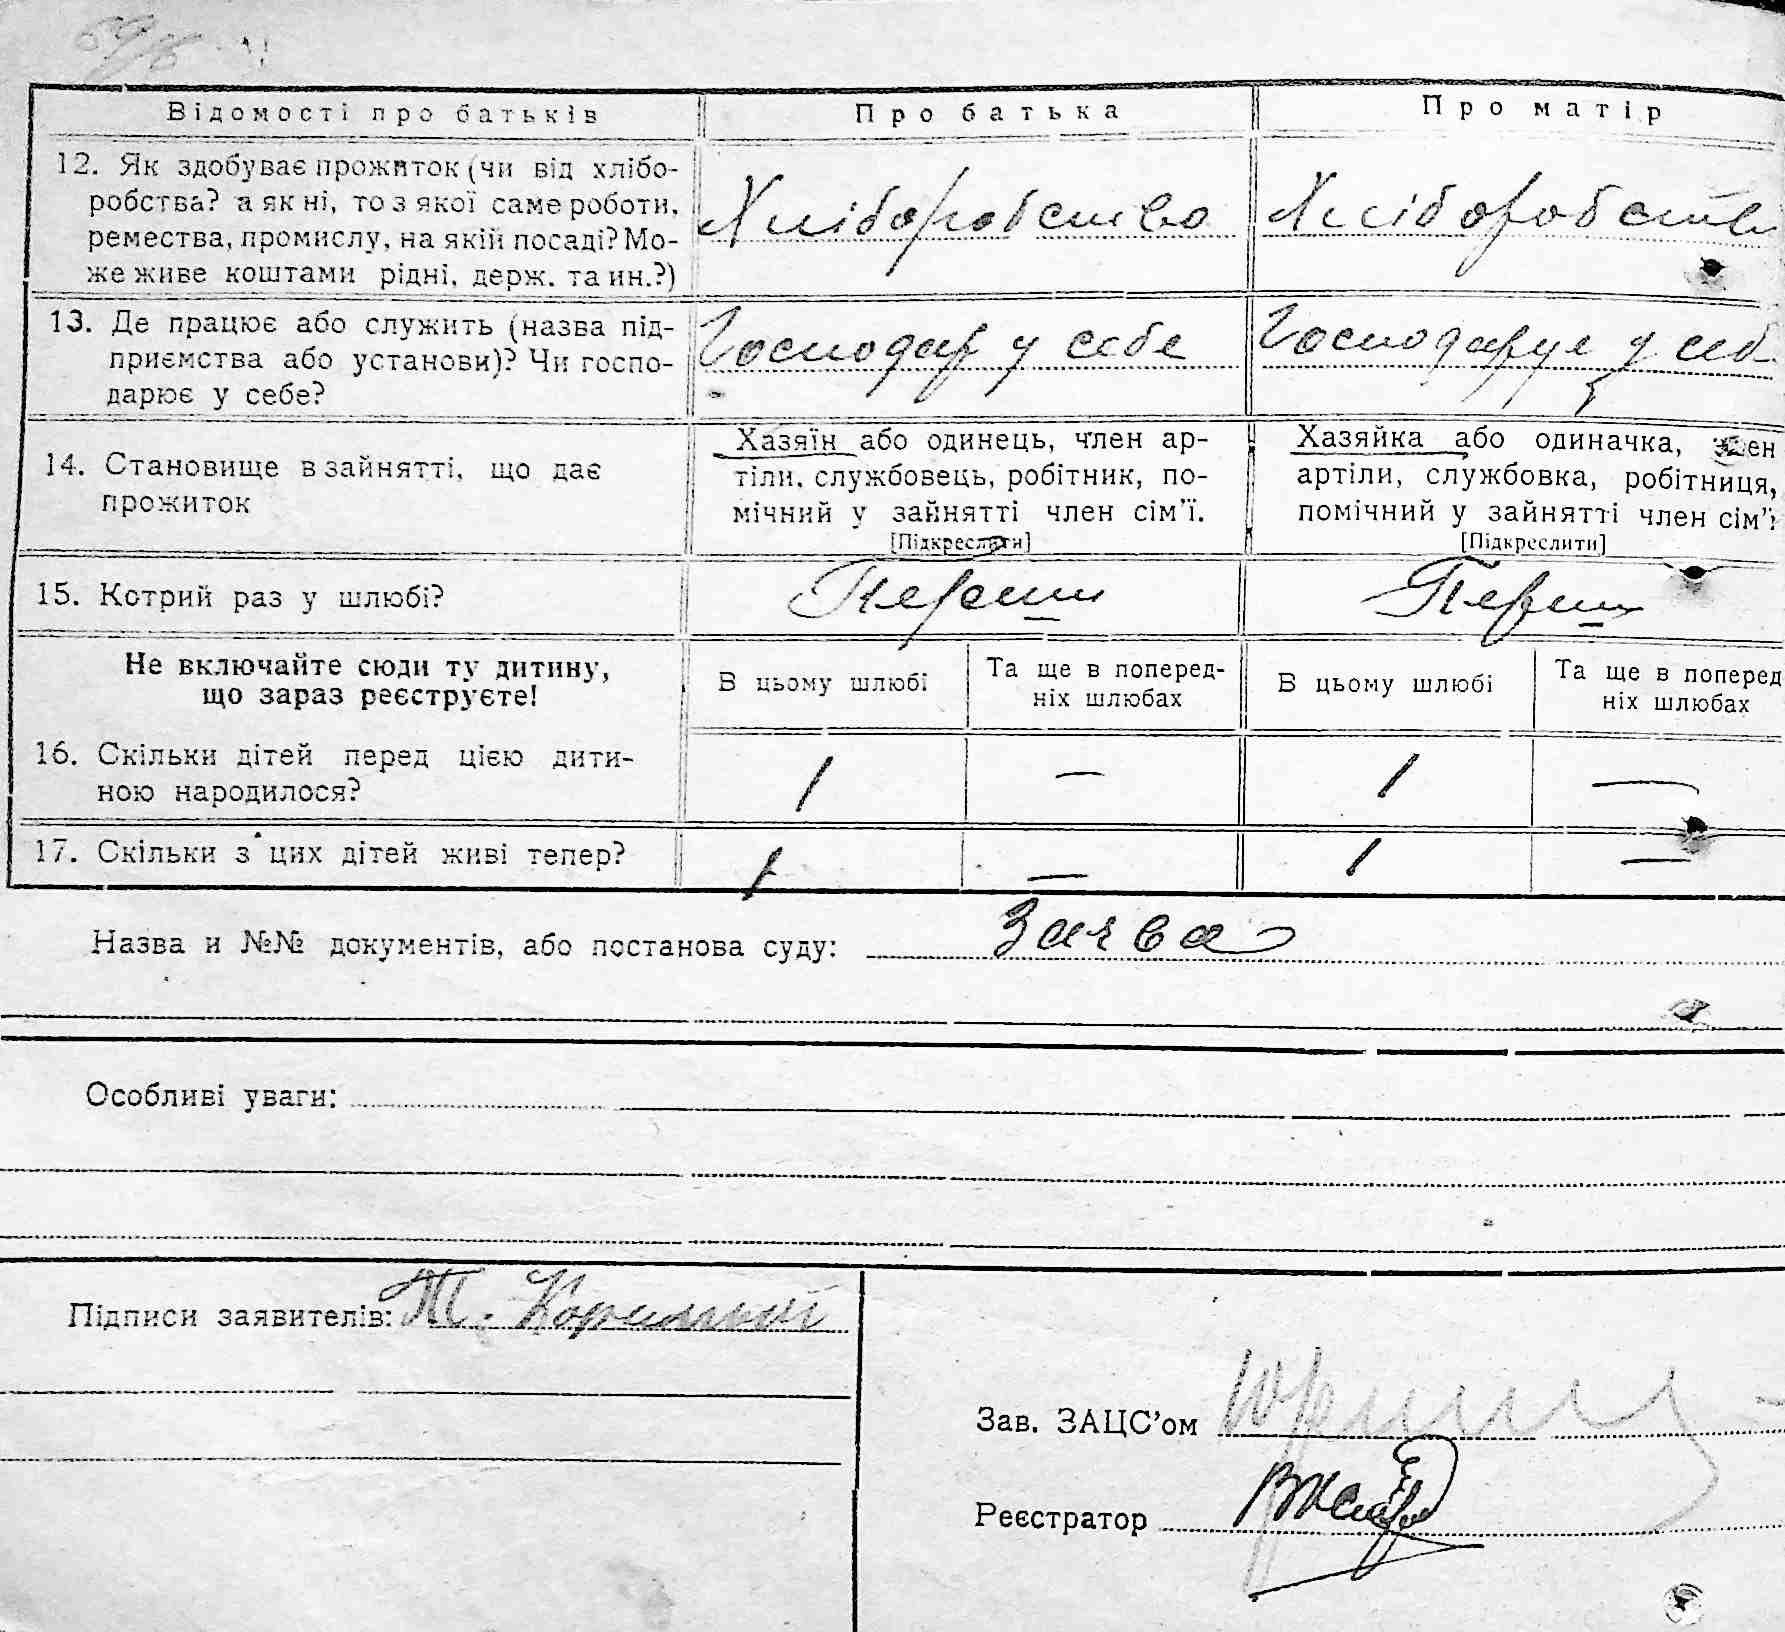 Відомості про батьків Про батька Про матір
12. Як здобуває прожиток (чи від хлібо-
робства? а як ні, то з якої саме роботи,
ремества, промислу, на якій посаді? Мо-
же живе коштами рідні, держ. та ин.?)
Хліборобство Хліборобство
13. Де працює або служить (назва під-
приємства або установи)? Чи госпо-
дарює у себе?
Господар у себе Господарує у себ
14. Становище в зайнятті, що дає
прожиток
Хазяїн або одинець, член ар-
тіли, службовець, робітник, по-
мічний у зайнятті член сім'ї.
[Підкреслити]
Хазяйка або одиначка, член
артіли, службовка, робітниця,
помічний у зайнятті член сім'ї
[Підкреслити]
15. Котрий раз у шлюбі? Перший Перший
Не включайте сюди ту дитину,
що зараз реєструєте!
В цьому шлюбі Та ще в поперед-
ніх шлюбах В цьому шлюбі Та ще в поперед
ніх шлюбах
16. Скільки дітей перед цією дити-
ною народилося?
1 — 1 —
17. Скільки з цих дітей живі тепер? 1 — 1 —
Назва и №№ документів, або постанова суду: Заява
Особливі уваги:
Підписи заявителів: Т.
Зав. ЗАЦС'ом
Реєстратор